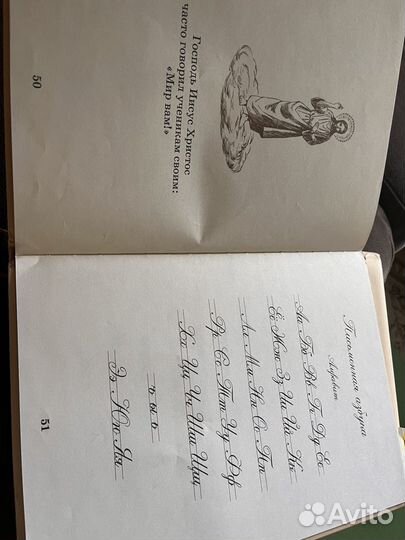 Господь Иисус Христос
часто говорил ученикам своим:
«Мир вам!»
50
Письменная азбука
Алфавит
Аа Бб Вв Гг Дд Ее
Ёё Жж Зз Ии Йй Кк
Лл Мм Нн Оо Пп
Рр Сс Тт Уу Фф
Хх Цц Чч Шш Щщ
ъ ы ь
Ээ Юю Яя
51
Avito